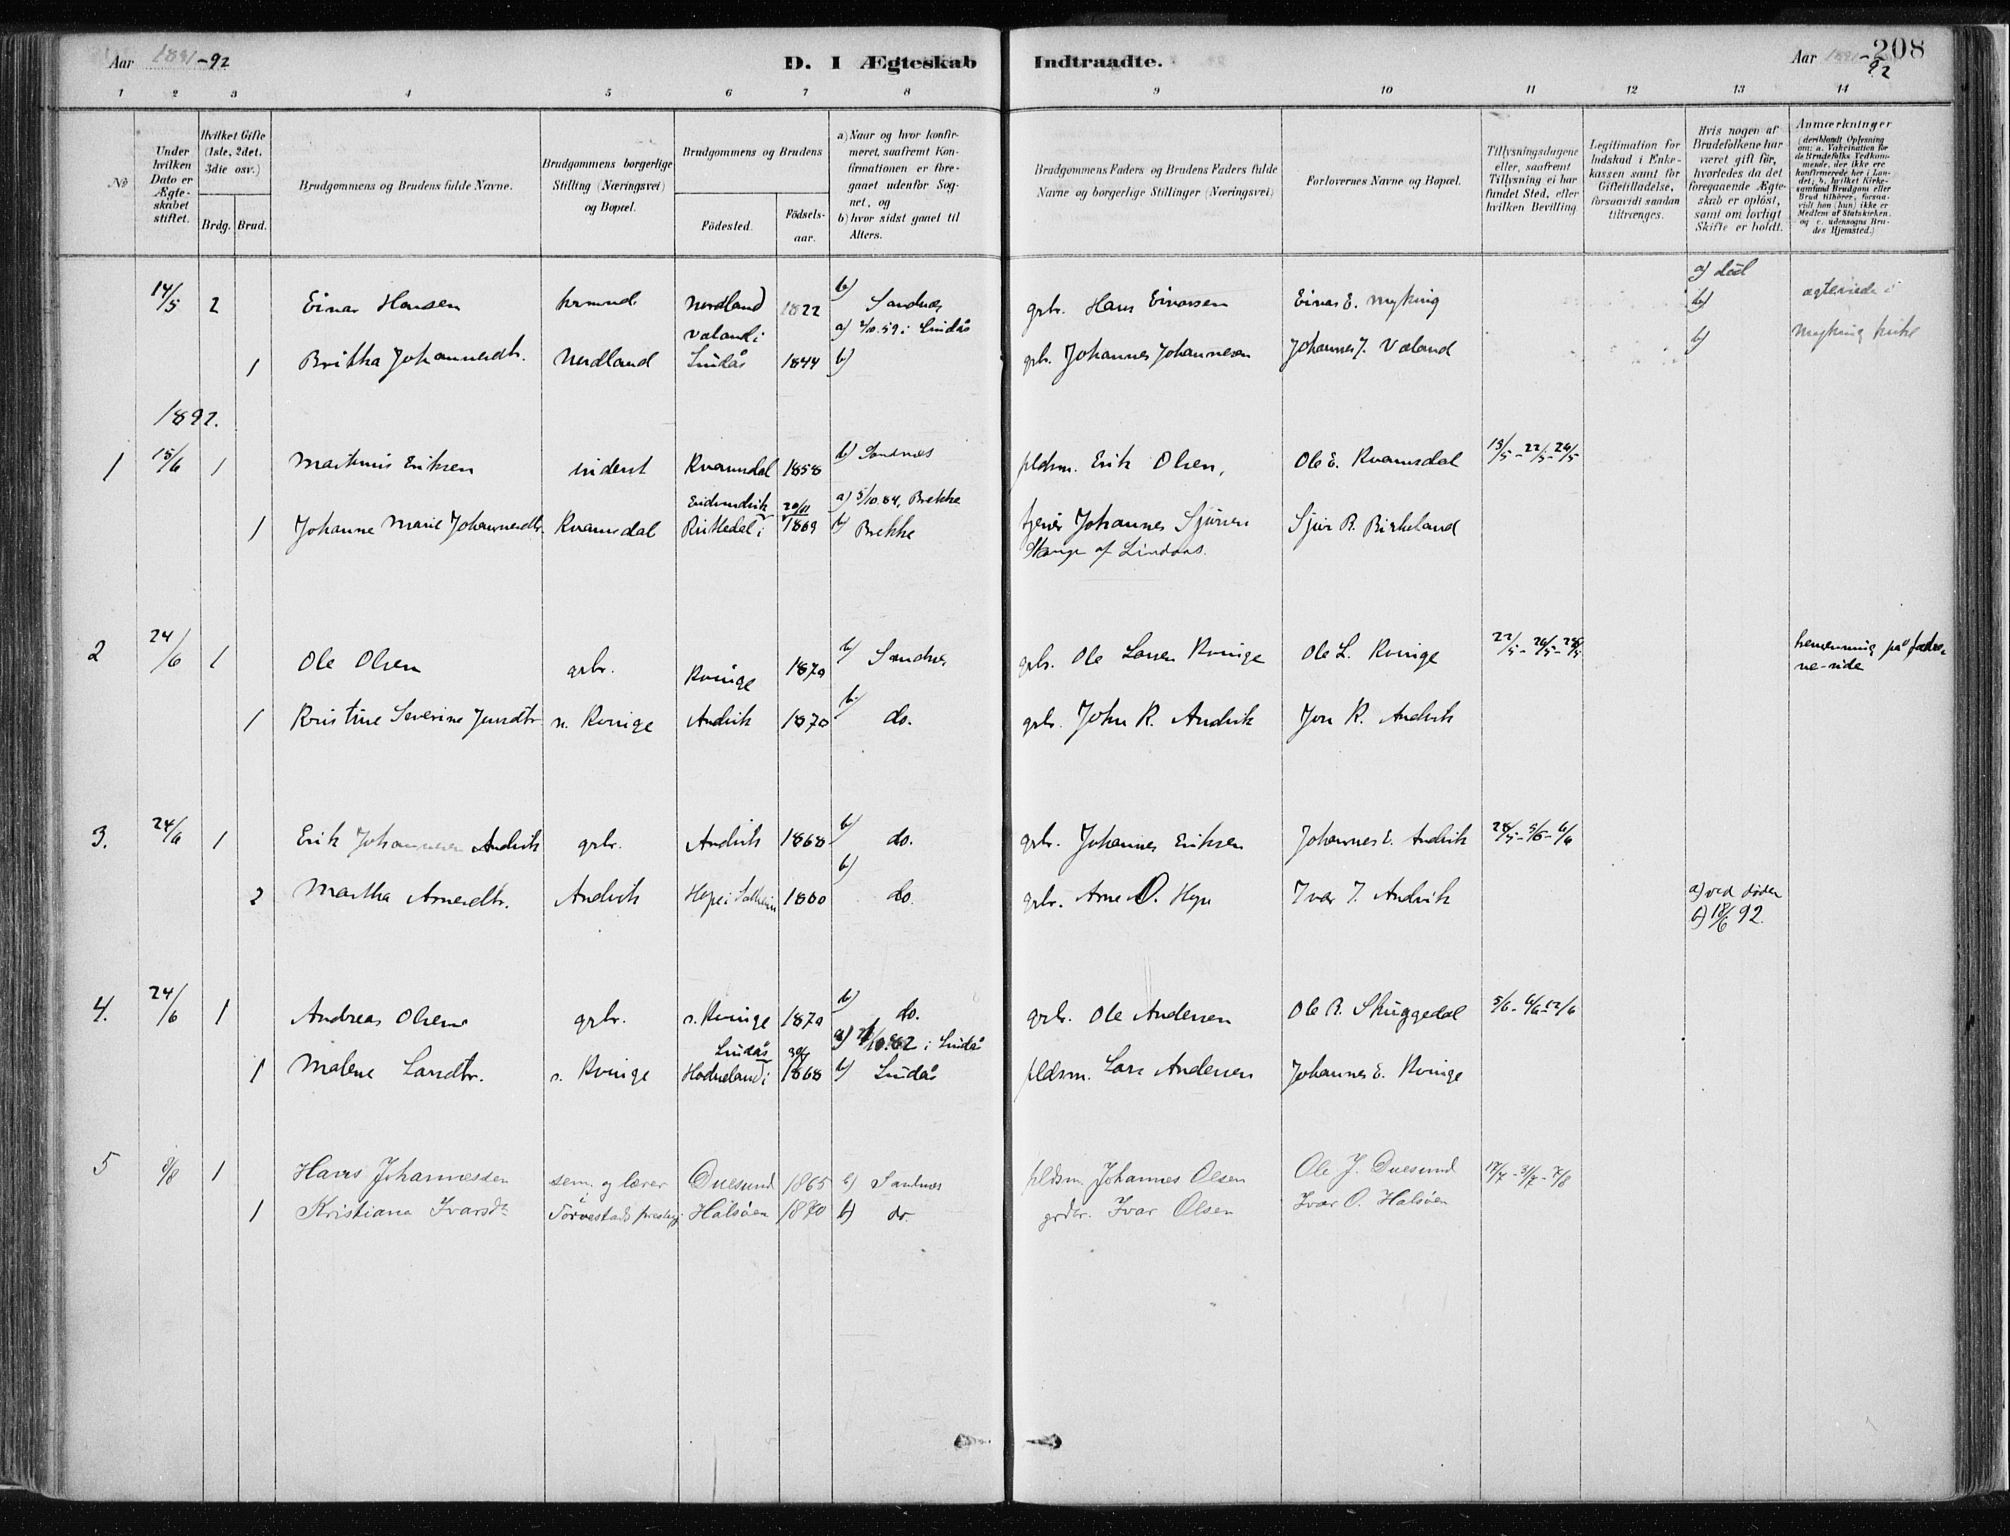 Aar 1891-92
D. I Ægteskab Indtraadte.
Aar 1891-92
208
1 2 3 4 5 6 7 8 9 10 11 12 13 14
No
Under hvilken Dato er Ægteskabet stiftet.
Hvilket Gifte (1ste, 2det, 3die osv.)
Brdg. Brud.
Brudgommens og Brudens fulde Navne.
Brudgommens borgerlige Stilling (Næringsvei) og Bopæl.
Brudgommens og Brudens
Fødested.
Fødselsaar.
a) Naar og hvor konfirmeret, saafremt Konfirmationen er foregaaet udenfor Sognet, og
b) hvor sidst gaaet til Alters.
Brudgommens Faders og Brudens Faders fulde Navne og borgerlige Stillinger (Næringsvei)
Forlovernes Navne og Bopæl.
Tillysningsdagene eller, saafremt Tillysning ei har fundet Sted, efter hvilken Bevilling
Legitimation for Indskud i Enkekassen samt for Giftetilladelse, forsaavidt saadan tiltrænges.
Hvis nogen af Brudefolkene har været gift før, hvorledes da det foregaaende Ægteskab er opløst, samt om lovligt Skifte er holdt.
Anmærkninger (deriblandt Oplysning om: a. Vakcination for de Brudefolks Vedkommende, der ikke ere konfirmerede her i Landet; b. hvilket Kirkesamfund Brudgom eller Brud tilhører, forsaavidt han (hun) ikke er Medlem af Statskirken, og c. udensogns Brudes Hjemsted.)
14/5 2 Einar Hansen krmnd. Nordland 1822 b) Sandnæs grbr. Hans Einarsen Einar E. Myking a) død b) ægteviede i
1 Britha Johannesdtr. Nordland Valand i Lindås 1844 a) 2/10.59 i Lindås b) grbr. Johannes Johannesen Johannes J. Valand b) Myking kirke
1892.
1 15/6 1 Martinus Eriksen inderst Kvamsdal 1858 b) Sandnæs pldsm. Erik Olsen, Ole E. Kvamsdal 13/5-22/5-26/5
1 Johanne Marie Johannesdtr. Kvamsdal Risnedal i 20/11 1869 a) 5/10.84, Brekke b) Brekke tjener Johannes Sjursen Sjur R. Birkeland
Stange af Lindaas.
2 24/6 1 Ole Olsen grbr. Kvinge 1870 b) Sandnæs grbr. Ole Larsen Kvinge Ole L. Kvinge 22/5-26/5-29/5
1 Kristine Severine Jensdtr n. Kvinge Andvik 1870 b) do. grbr. John R. Andvik Jon R. Andvik
3. 24/6 1 Erik Johannesen Andvik grbr. Andvik 1868 b) do. grbr. Johannes Eriksen Johannes E. Andvik 29/5-5/6-6/6
2 Martha Arnesdtr. Andvik Hope i 1860 b) do. grbr. Arne O. Hope Ivar J. Andvik a) ved døden b) 18/6 92.
4. 24/6 1 Andreas Olsen grbr. n. Kvinge 1870 b) do. grbr. Ole Andersen Ole R. Skuggedal 5/6-6/6-12/6
1 Malene Larsdtr. n. Kvinge Hodneland i Lindås 1868 a) /10.82 i Lindås b) Lindås pldsm. Lars Andersen Johannes E. Kvinge
5 8/8 1 Hans Johannessen sem. og lærer Duesund 1865 b) Sandnæs pldsm. Johannes Olsen Ole J. Duesund 17/7-31/7-7/8
1 Kristiane Ivarsdr i Torvestads prestegj. Halsøen 1870 b) do. grdbr. Ivar Olsen Ivar O. Halsøen